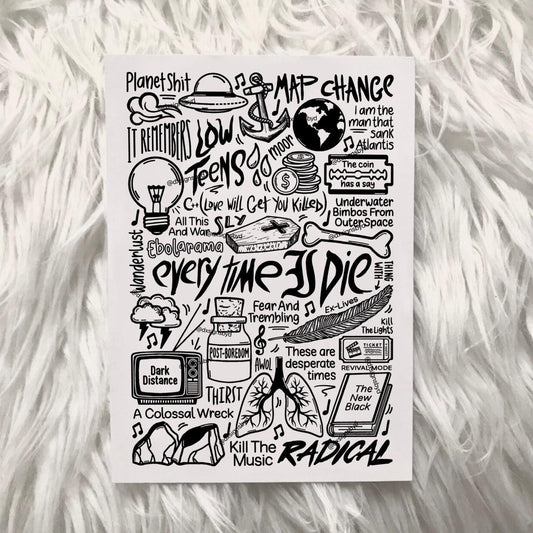 Planet Shit
MAP CHANGE
I am the
man that
sank
Atlantis
IT REMEMBERS
LOW
TEENS
moor
The coin
has a say
C++(Love Will Get You Killed)
Underwater
Bimbos From
Outer Space
All This
And War
SLY
Ebolarama
Wanderlust
every time I Die
THING
WITH
Ex-Lives
Fear And
Trembling
Kill
The Lights
POST-BOREDOM
AWOL
These are
desperate
times
TICKET
REVIVAL MODE
Dark
Distance
The
New
Black
THIRST
A Colossal Wreck
Kill The
Music
RADICAL